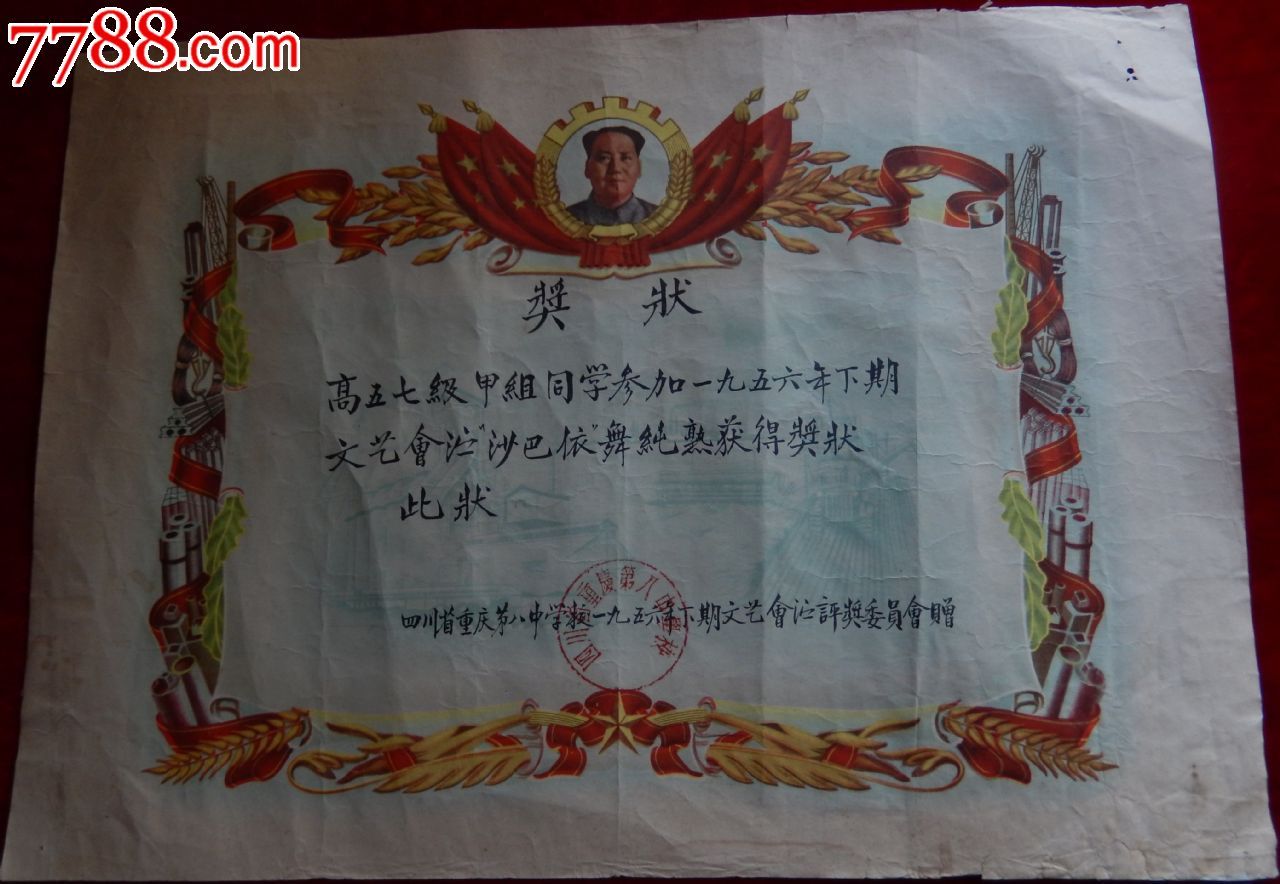 7788.com
獎 狀
高五七級甲組同学参加一九五六年下期
文艺會演“沙巴依”舞純熟获得獎狀
此狀
四川省重庆第八中学校一九五六年下期文艺會演評奬委員會贈
四川重慶第八中學校